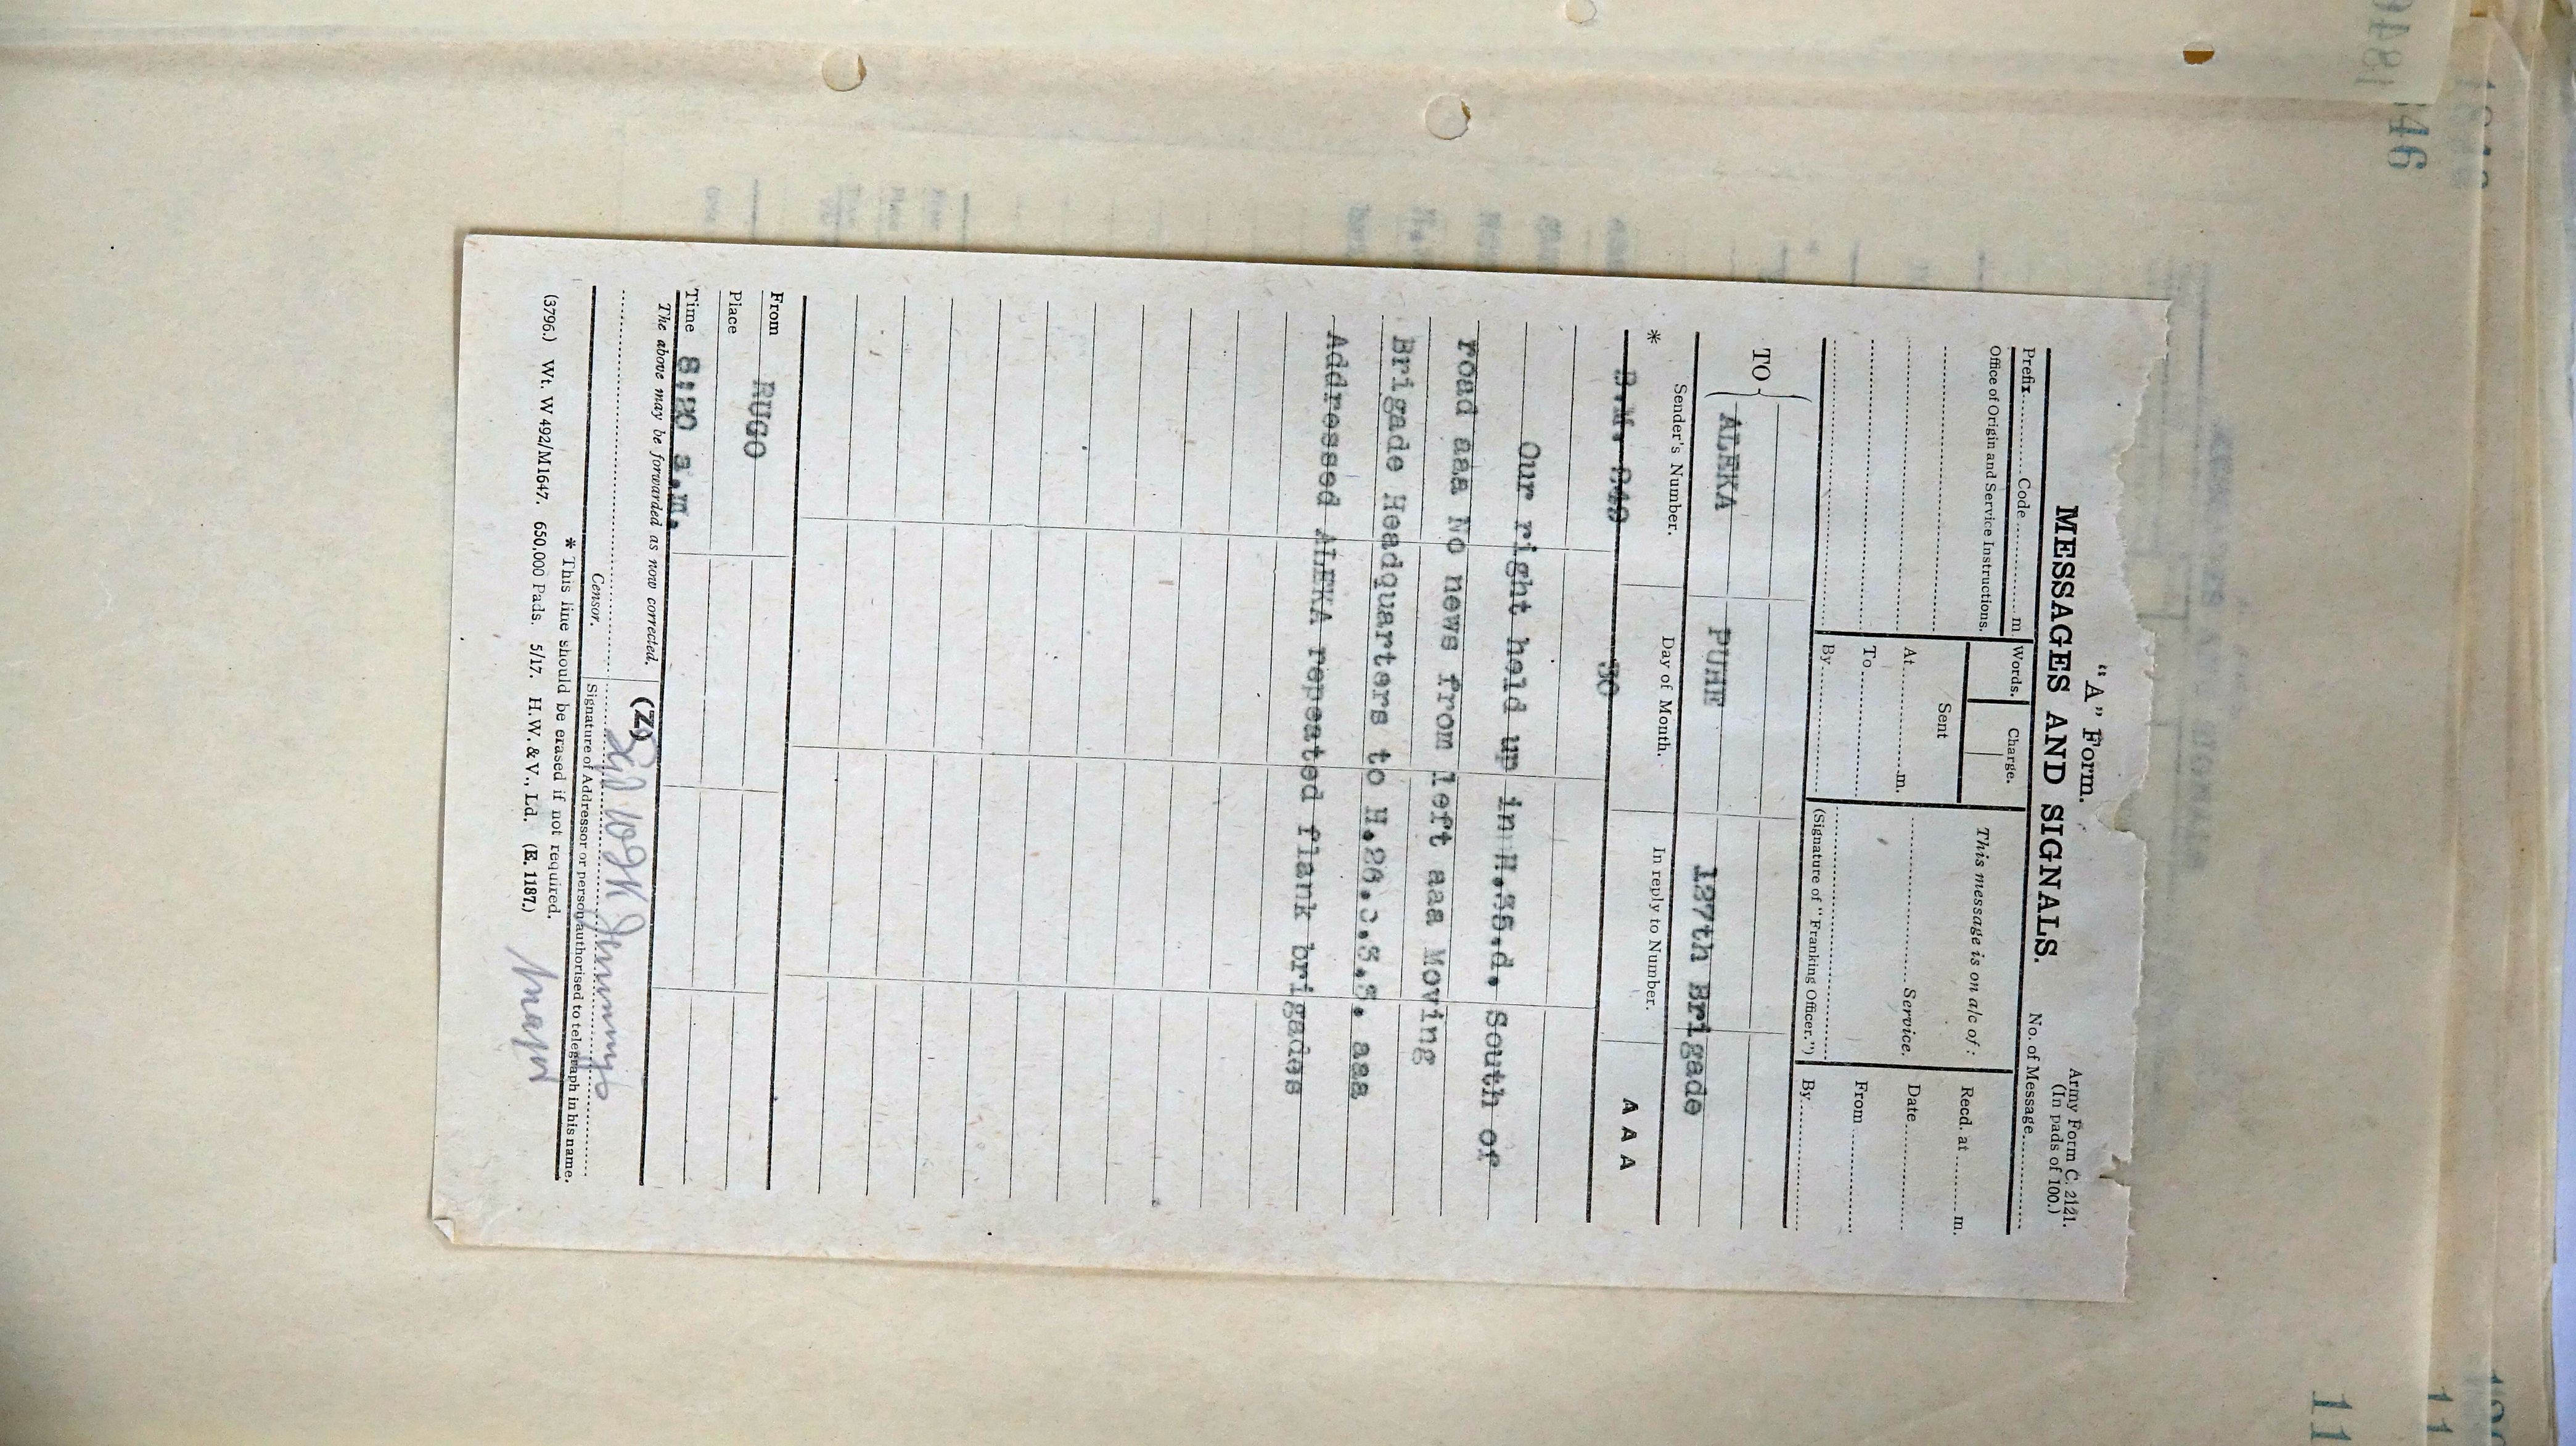 "A" Form.
Army Form C. 2121.
(In pads of 100.)
MESSAGES AND SIGNALS.
No. of Message
Prefix Code m
Words. Charge.
This message is on a/c of :
Recd. at m.
Office of Origin and Service Instructions.
Sent
Service.
Date
At m.
From
To
By
(Signature of "Franking Officer.")
By
TO
ALEKA PUHE 127th Brigade
* Sender's Number. Day of Month. In reply to Number. AAA
B.M. 849 30
Our right held up in H.36.d. South of
road aaa No news from left aaa Moving
Brigade Headquarters to H.26.c.5.5. aaa
Addressed ALEKA repeated flank brigades
From RUGO
Place
Time 8:20 a.m.
The above may be forwarded as now corrected. (Z)
Censor. Signature of Addressor or person authorised to telegraph in his name.
* This line should be erased if not required.
(3796.) Wt. W 492/M1647. 650,000 Pads. 5/17. H.W. & V., Ld. (E. 1187.)
Major
46
11